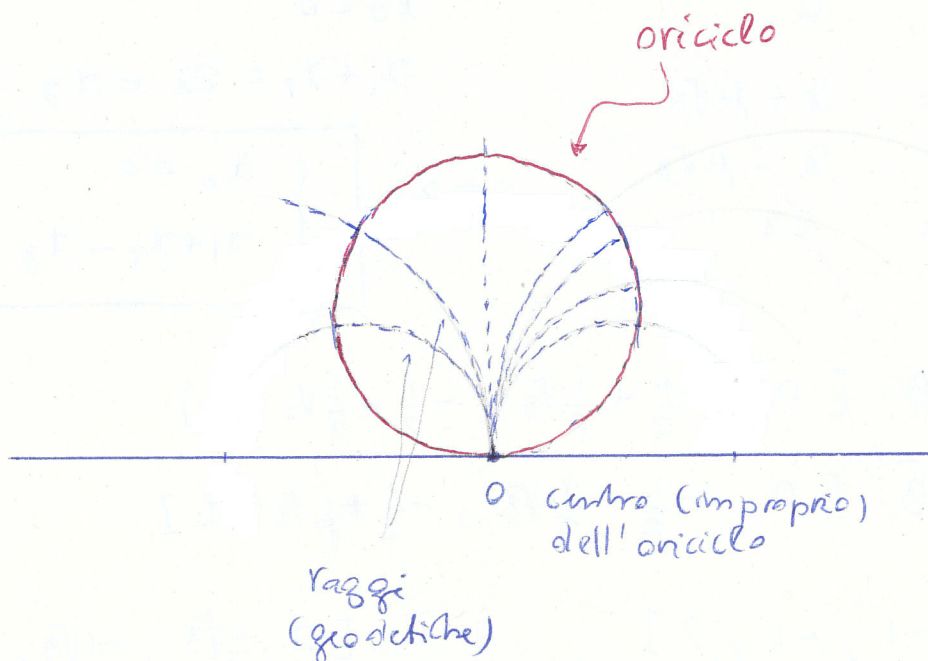 oriciclo
O centro (improprio)
dell'oriciclo
raggi
(geodetiche)